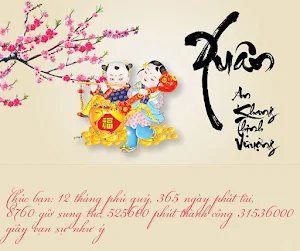 Xuân
An
Khang
Thịnh
Vượng
福
Chúc bạn: 12 tháng phú quý, 365 ngày phát tài,
8760 giờ sung túc, 525600 phút thành công 31536000
giây vạn sự như ý